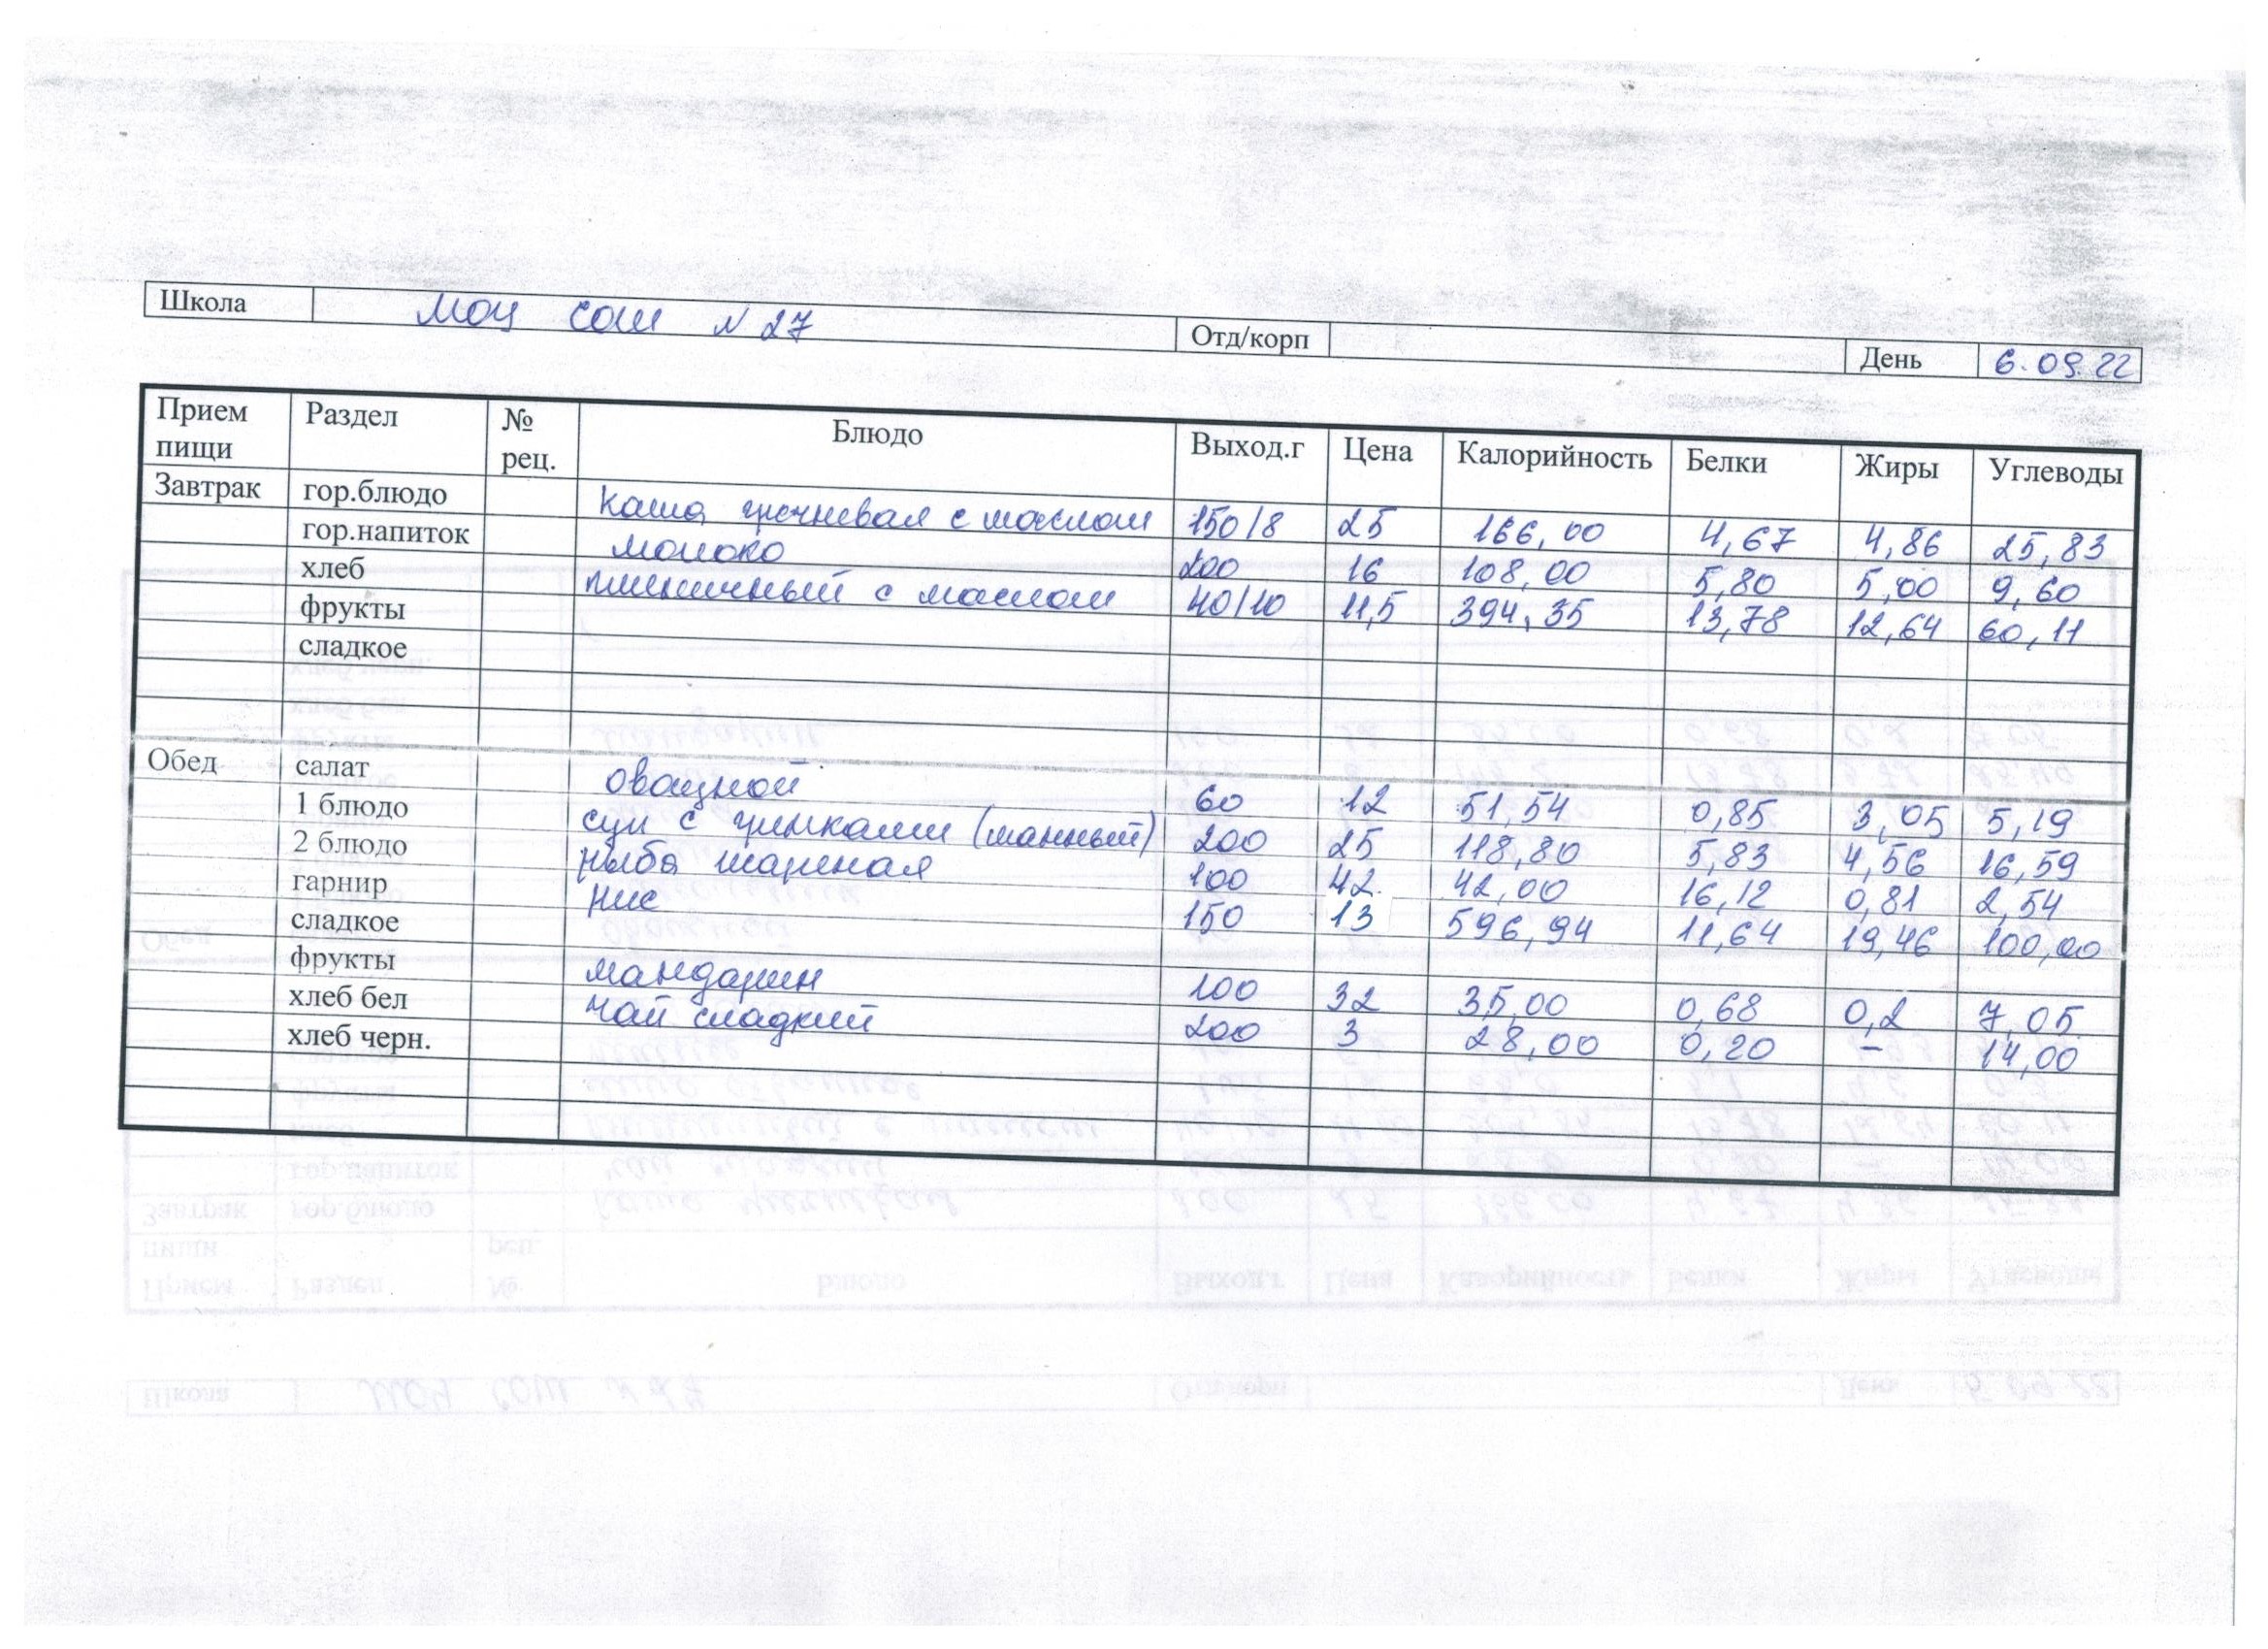 Школа МОУ СОШ N 27 Отд/корп День 6.09.22
Прием пищи Раздел № рец. Блюдо Выход.г Цена Калорийность Белки Жиры Углеводы
Завтрак гор.блюдо Каша гречневая с маслом 150/8 25 166,00 4,67 4,86 25,83
гор.напиток молоко 200 16 108,00 5,80 5,00 9,60
хлеб пшеничный с маслом 40/10 11,5 394,35 13,78 12,64 60,11
фрукты
сладкое
Обед салат овощной 60 12 51,54 0,85 3,05 5,19
1 блюдо суп с гренками (манный) 200 25 118,80 5,83 4,56 16,59
2 блюдо рыба жареная 100 42 42,00 16,12 0,81 2,54
гарнир рис 150 13 596,94 11,64 19,46 100,00
сладкое
фрукты мандарин 100 32 35,00 0,68 0,2 7,05
хлеб бел чай сладкий 200 3 28,00 0,20 – 14,00
хлеб черн.